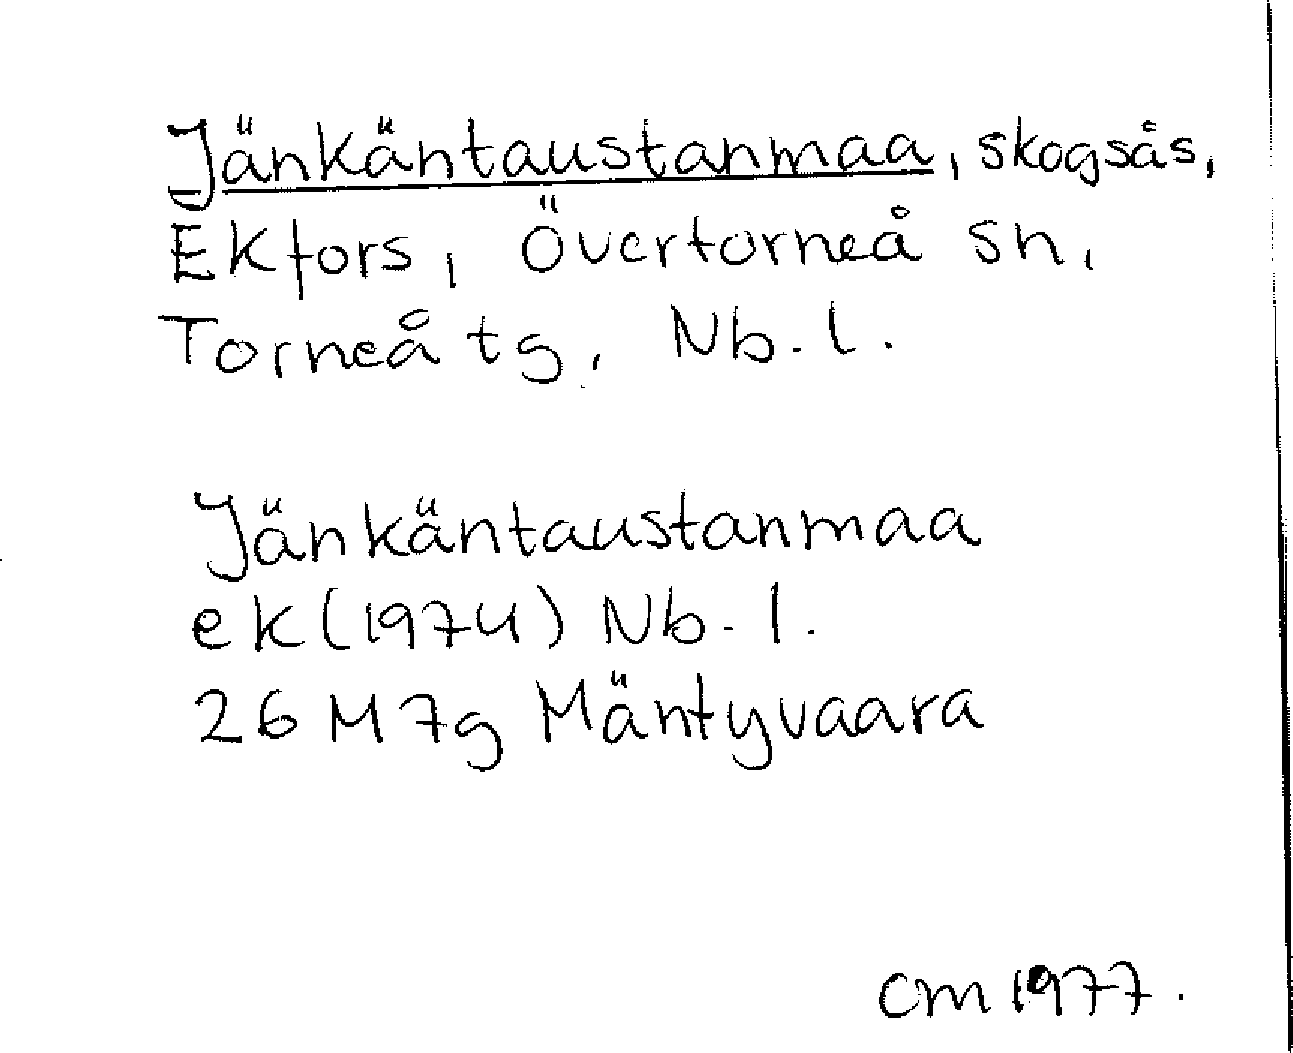 Jänkäntaustanmaa, skogsås,
Ekfors, Övertorneå sn,
Torneå tg, Nb. l.
Jänkäntaustanmaa
ek (1974) Nb. l.
26 M 7g Mäntyvaara
CM 1977.